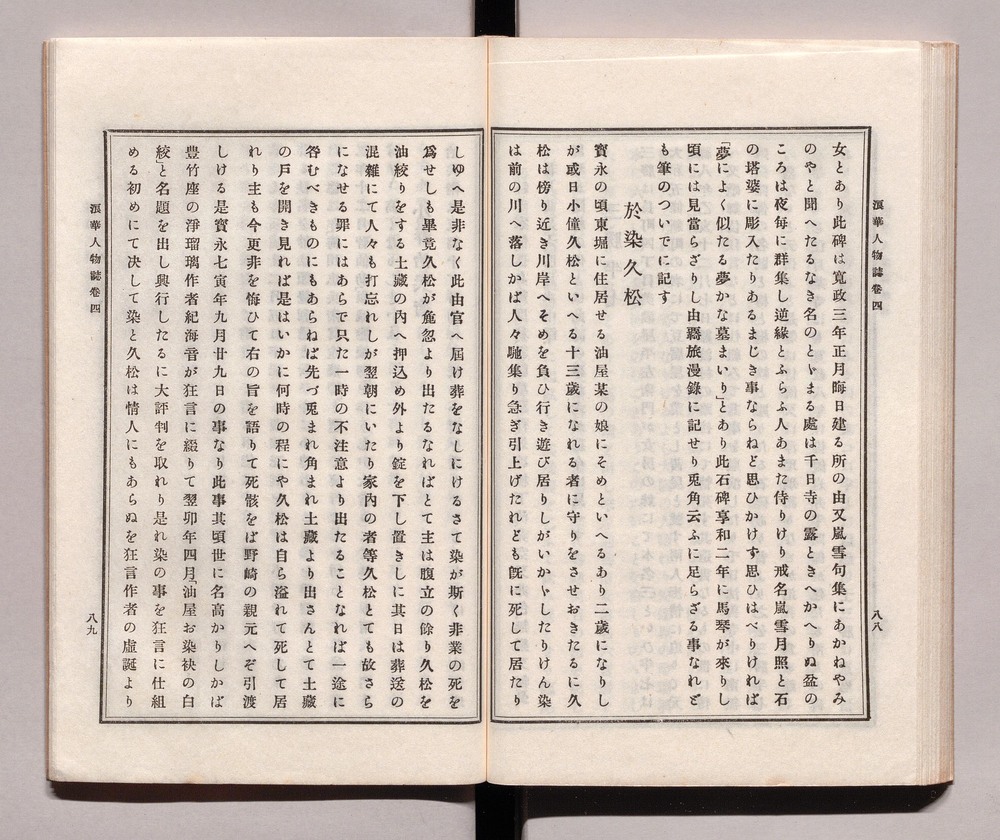 浪華人物誌卷四
八八
女とあり此碑は寬政三年正月晦日建る所の由又嵐雪句集にあかねやみ
のやと聞へたるなき名のとゞまる處は千日寺の露ときへかへりぬ盆の
ころは夜每に群集し逆緣とふらふ人あまた侍りけり戒名嵐雪月照と石
の塔婆に彫入たりあるまじき事ならねど思ひかけす思ひはべりければ
「夢によく似たる夢かな墓まいり」とあり此石碑享和二年に馬琴が來りし
頃には見當らざりし由羇旅漫錄に記せり兎角云ふに足らざる事なれど
も筆のついでに記す
於染久松
寳永の頃東堀に住居せる油屋某の娘にそめといへるあり二歲になりし
が或日小僮久松といへる十三歲になれる者に守りをさせおきたるに久
松は傍り近き川岸へそめを負ひ行き遊び居りしがいかゞしたりけん染
は前の川へ落しかば人々馳集り急ぎ引上げたれども旣に死して居たり
しゆへ是非なく此由官へ屆け葬をなしにけるさて染が斯く非業の死を
爲せしも畢竟久松が麁忽より出たるなればとて主は腹立の餘り久松を
油絞りをする土藏の內へ押込め外より錠を下し置きしに其日は葬送の
混雜にて人々も打忘れしが翌朝にいたり家內の者等久松とても故さら
になせる罪にはあらで只た一時の不注意より出たることなれば一途に
咎むべきものにもあらねば先づ兎まれ角まれ土藏より出さんとて土藏
の戶を開き見れば是はいかに何時の程にや久松は自ら溢れて死して居
れり主も今更非を悔ひて右の旨を語りて死骸をば野崎の親元へぞ引渡
しける是寳永七寅年九月廿九日の事なり此事其頃世に名高かりしかば
豊竹座の淨瑠璃作者紀海音が狂言に綴りて翌卯年四月「油屋お染袂の白
絞」と名題を出し興行したるに大評判を取れり是れ染の事を狂言に仕組
める初めにて决して染と久松は情人にもあらぬを狂言作者の虛誕より
浪華人物誌卷四
八九